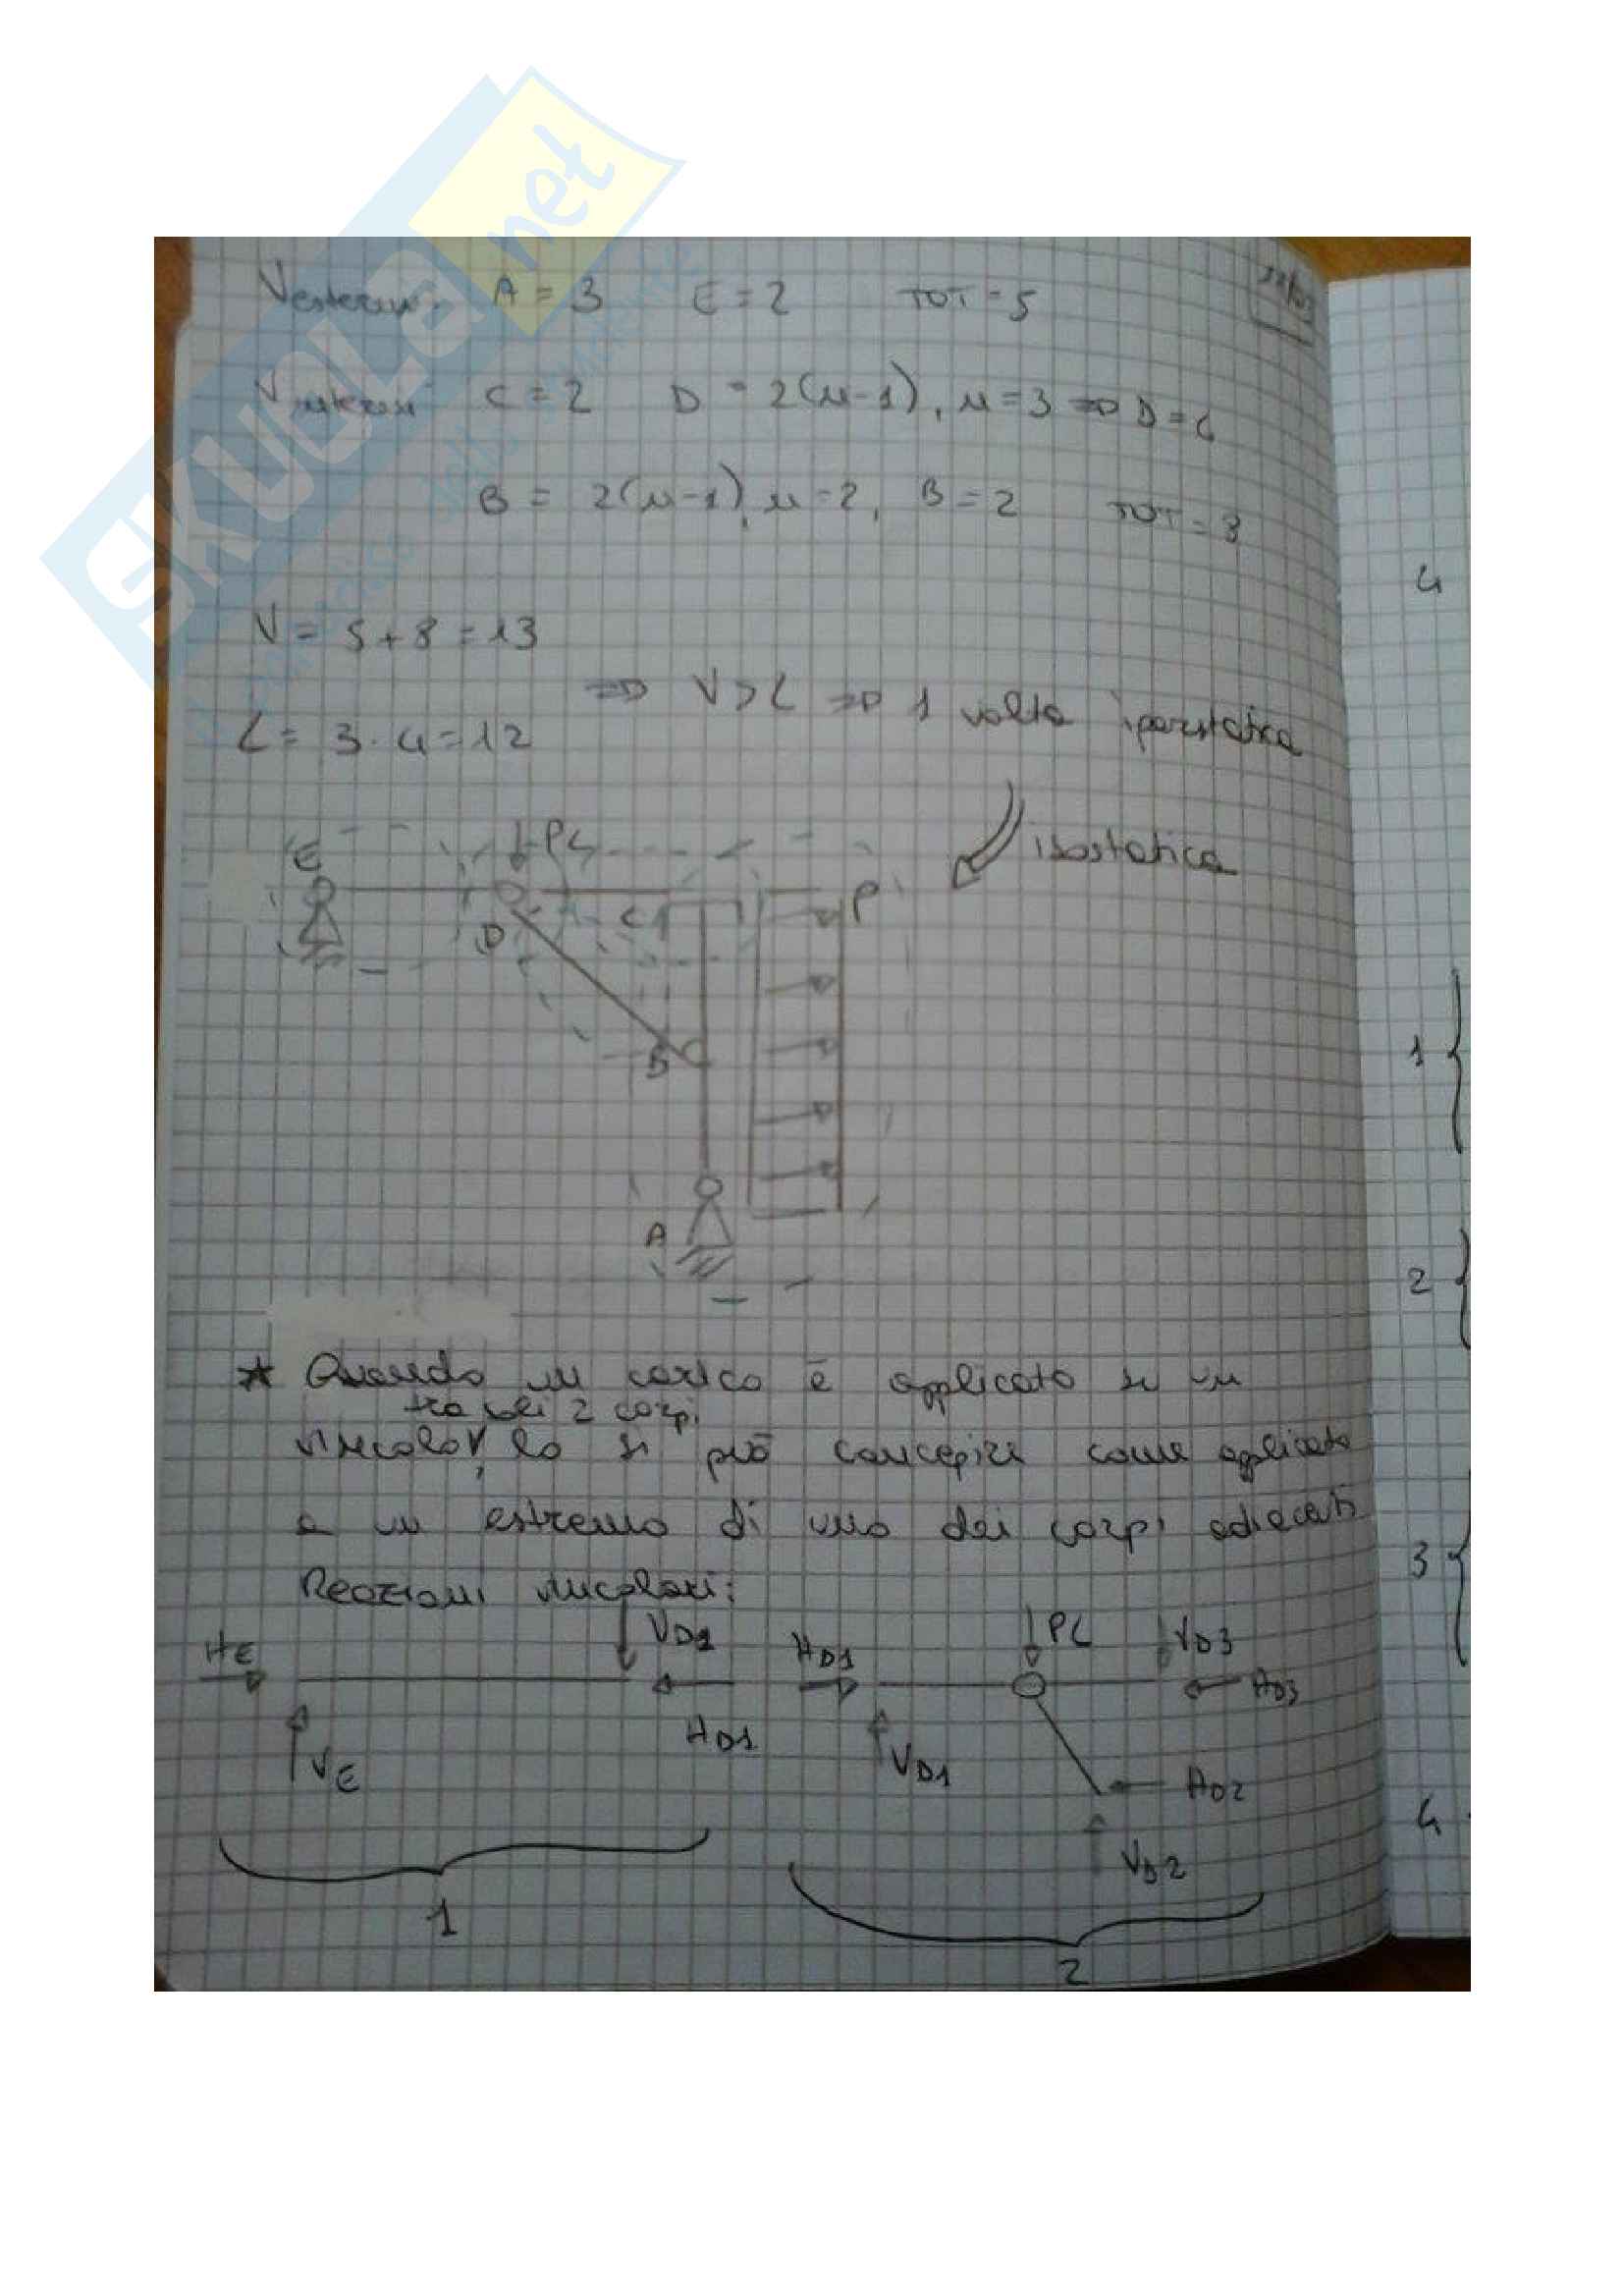 SKUOLA.net
Vesterni: A = 3 E = 2 TOT = 5
Vinterni C = 2 D = 2(n-1), n = 3 => D = 4
B = 2(n-1), n = 2, B = 2 TOT = 8
V = 5 + 8 = 13
=> V > L => 1 volta iperstatica
L = 3 · 4 = 12
isostatica
E PL
D C P
B
A
* Quando un carico è applicato su un
tra dei 2 corpi
vincolo, lo si può concepire come applicato
a un estremo di uno dei corpi adiacenti
Reazioni vincolari:
HE VD1 HD1 PL VD3
HD3
HD1 VE VD1 HD2
VD2
1 2
4
1
2
3
4